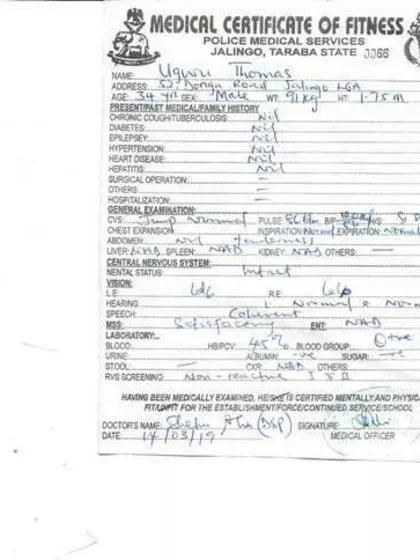 MEDICAL CERTIFICATE OF FITNESS
POLICE MEDICAL SERVICES
JALINGO, TARABA STATE 0066
NAME: Ugwu Thomas
ADDRESS: 52, Donga Road Jalingo LGA
AGE: 34 yrs SEX: Male WT: 91kg HT: 1.75m
PRESENT/PAST MEDICAL/FAMILY HISTORY
CHRONIC COUGH/TUBERCULOSIS: Nil
DIABETES: Nil
EPILEPSEY: Nil
HYPERTENSION: Nil
HEART DISEASE: Nil
HEPATITIS: Nil
SURGICAL OPERATION: —
OTHERS: —
HOSPITALIZATION: —
GENERAL EXAMINATION:
CVS: Normal PULSE 86 b/m B/P
CHEST EXPANSION: INSPIRATION Normal EXPIRATION: Normal
ABDOMEN: Nil tenderness
LIVER: NAD SPLEEN: NAD KIDNEY NAD OTHERS: —
CENTRAL NERVOUS SYSTEM:
NENTAL STATUS: Intact
VISION:
L.E: 6/6 R.E: 6/6
HEARING L Normal R
SPEECH: Coherent
MSS: Satisfactory ENT: NAD
LABORATORY:..
BLOOD: HB/PCV: 45% BLOOD GROUP: O+ve
URINE: ALBUMIN: -ve SUGAR: -ve
STOOL: — NAD OTHERS:
RVS SCREENING: Non-reactive I & II
HAVING BEEN MEDICALLY EXAMINED, HE/SHE IS CERTIFIED MENTALLY AND
FIT/UNFIT FOR THE ESTABLISHMENT/FORCE/CONTINUED SERVICE/SCHOOL
DOCTOR'S NAME: (DSP) SIGNATURE:
DATE: 14/03/19 MEDICAL OFFICER